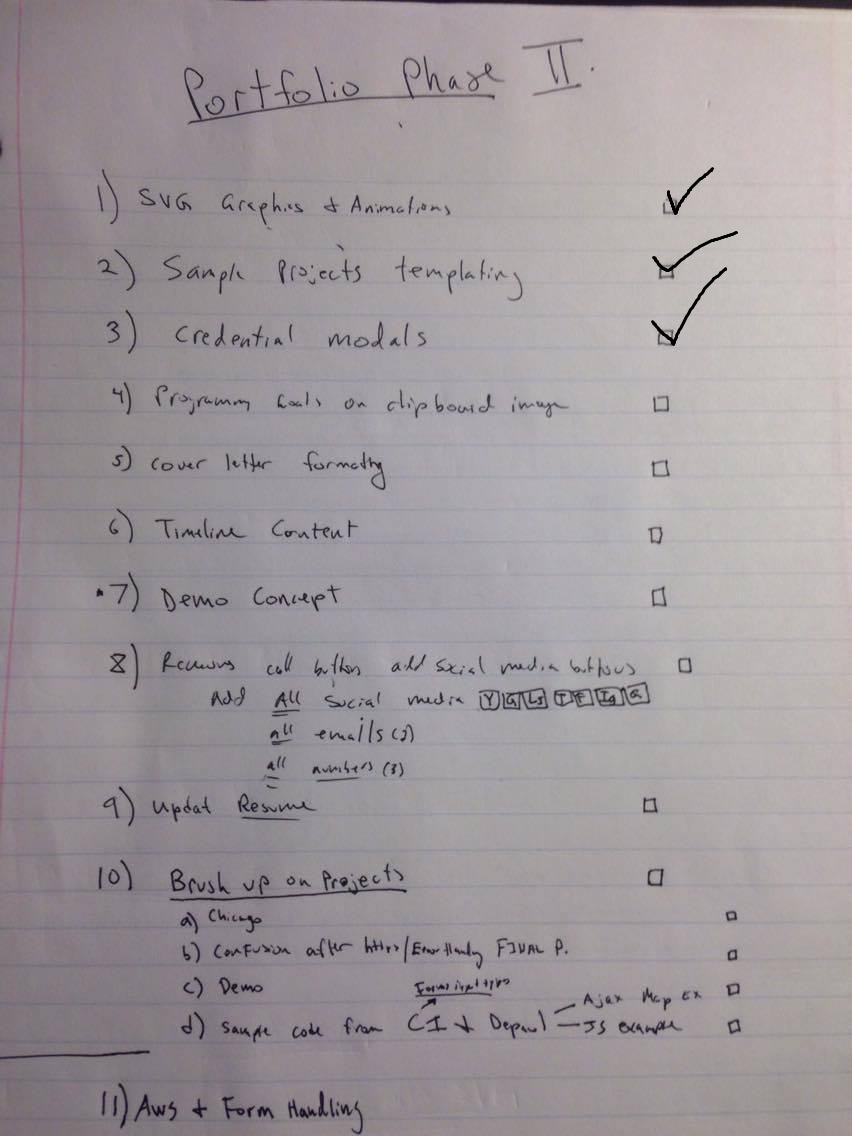 Portfolio Phase II.
1) SVG Graphics & Animations
2) Sample Projects templating
3) Credential modals
4) Programm Goals on clipboard image
5) Cover letter formatting
6) Timeline Content
7) Demo Concept
8) call buttons add social media buttons
Add All Social media Y G Ls T F Ig G
all emails (2)
all numbers (3)
9) Updat Resume
10) Brush up on Projects
a) Chicago
b) Confusion after https/Error Handling FINAL P.
c) Demo
Forms input types
d) Sample code from CI & Depaul
Ajax Map Ex
JS example
11) Aws & Form Handling